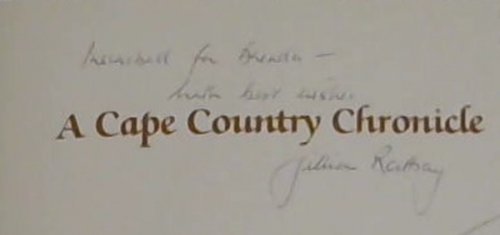 Inscribed for Brenda –
with best wishes.
A Cape Country Chronicle
Gillian Rattray